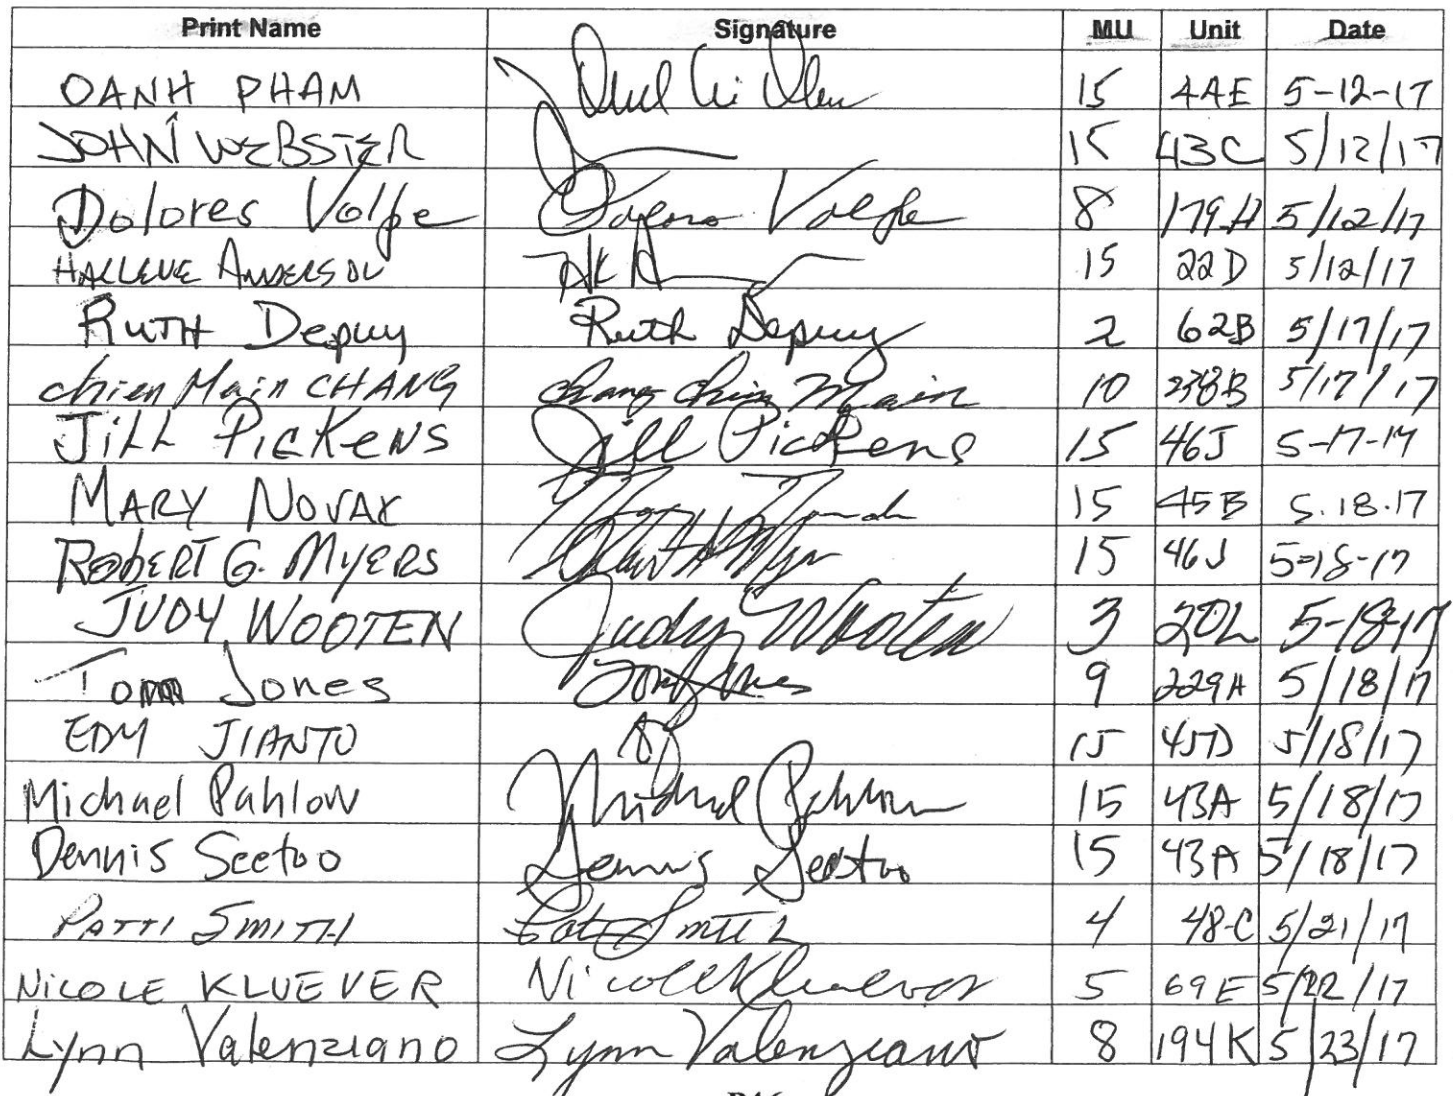 Print Name Signature MU Unit Date
OANH PHAM 15 4AE 5-12-17
JOHN WEBSTER 15 43C 5/12/17
Dolores Volpe Dolores Volpe 8 179.H 5/12/17
HALLEUE ANDERSON 15 22D 5/12/17
RUTH Depuy Ruth Depuy 2 62B 5/17/17
chien Main CHANG Chang Chien Main 10 238B 5/17/17
JiLL PicKeNS Jill Pickens 15 46J 5-17-17
MARY NOVAK 15 45B 5.18.17
RobERT G. MyERS 15 46J 5-18-17
JUDY WOOTEN Judy Wooten 3 20L 5-18-17
Tom Jones Tom Jones 9 229A 5/18/17
EDY JIANTO 15 45D 5/18/17
Michael Pahlow Michael Pahlow 15 43A 5/18/17
Dennis Seetoo Dennis Seetoo 15 43A 5/18/17
PATTI SMITH Smith 4 48-C 5/21/17
NICOLE KLUEVER Nicole Kluever 5 69E 5/22/17
Lynn Valenziano Lynn Valenziano 8 194K 5/23/17